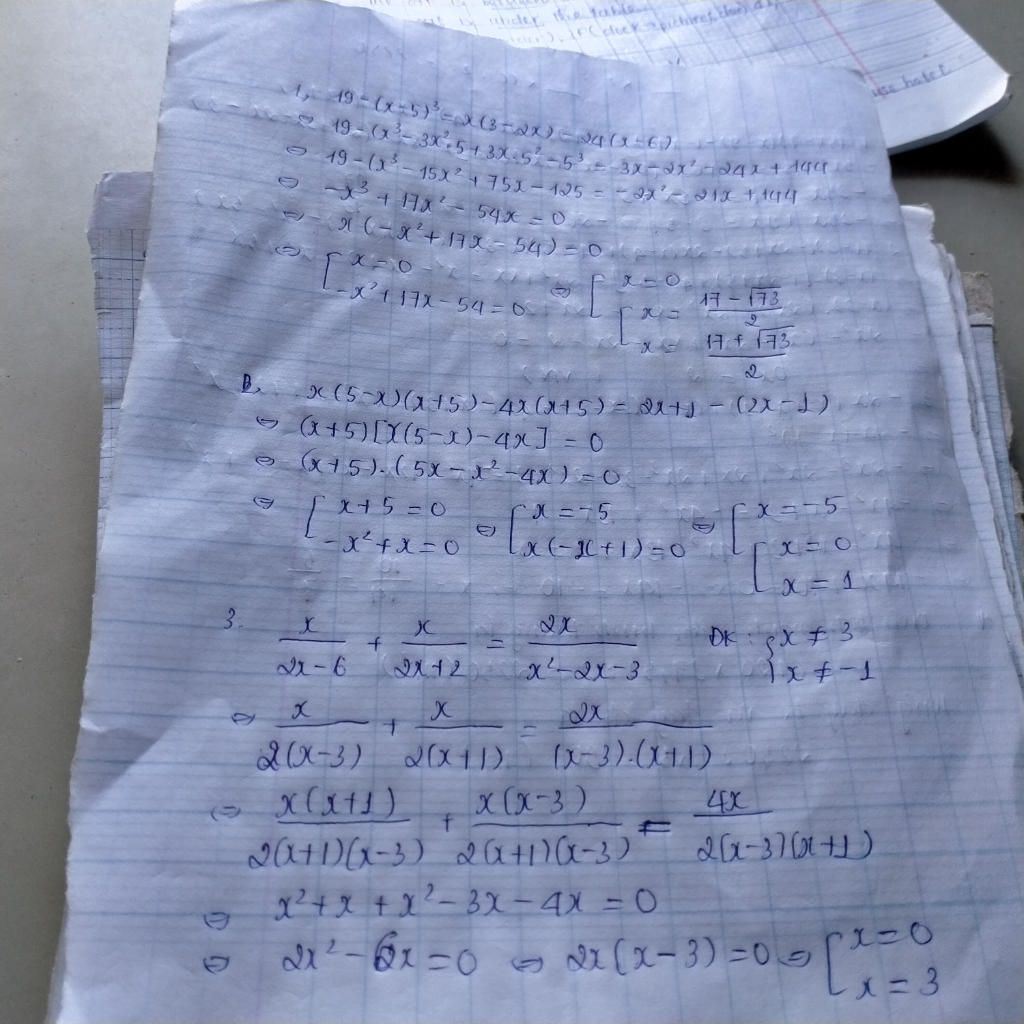 1, 19 - (x-5)³ = x(3-2x) - 24(x-6)
⇔ 19 - (x³ - 3x².5 + 3x.5² - 5³ = 3x - 2x² - 24x + 144
⇔ 19 - (x³ - 15x² + 75x - 125 = -2x² - 21x + 144
⇔ -x³ + 17x² - 54x = 0
⇔ x(-x² + 17x - 54) = 0
⇔ [ x = 0 ; -x² + 17x - 54 = 0 ⇔ [ x = 0 ; [ x = (17 - √73)/2 ; x = (17 + √73)/2
2. x(5-x)(x+5) - 4x(x+5) = 2x+1 - (2x-1)
⇔ (x+5)[x(5-x) - 4x] = 0
⇔ (x+5).(5x - x² - 4x) = 0
⇔ [ x+5 = 0 ; -x² + x = 0 ⇔ [ x = -5 ; x(-x+1) = 0 ⇔ [ x = -5 ; [ x = 0 ; x = 1
3. x/(2x-6) + x/(2x+2) = 2x/(x²-2x-3) ĐK: { x ≠ 3 ; x ≠ -1
⇔ x/(2(x-3)) + x/(2(x+1)) = 2x/((x-3).(x+1))
⇔ x(x+1)/(2(x+1)(x-3)) + x(x-3)/(2(x+1)(x-3)) = 4x/(2(x-3)(x+1))
⇔ x² + x + x² - 3x - 4x = 0
⇔ 2x² - 6x = 0 ⇔ 2x(x-3) = 0 ⇔ [ x = 0 ; x = 3